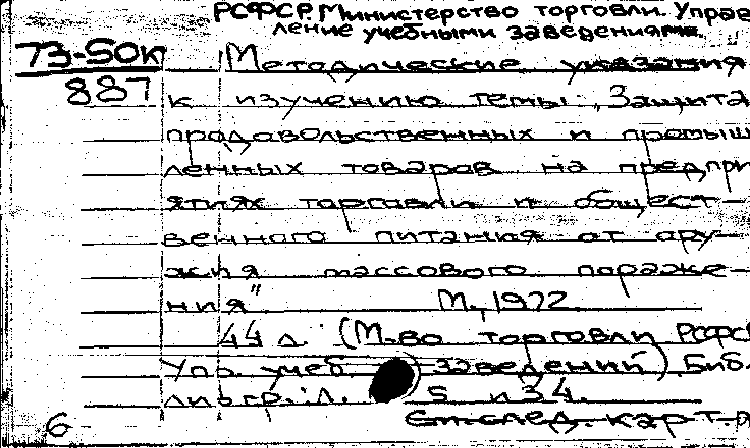 РСФСР. Министерство торговли. Управ
ление учебными заведениями.
73-50к Методические указания
887 к изучению темы „Защита
продовольственных и промыш
ленных товаров на предпри
ятиях торговли и общест-
венного питания от ору-
жия массового пораже-
ния" М., 1972
44 л. (М-во торговли РСФС
Упр. учеб. заведений) Биб.
лиогр.: л. и 34.
6 См. след. карт.